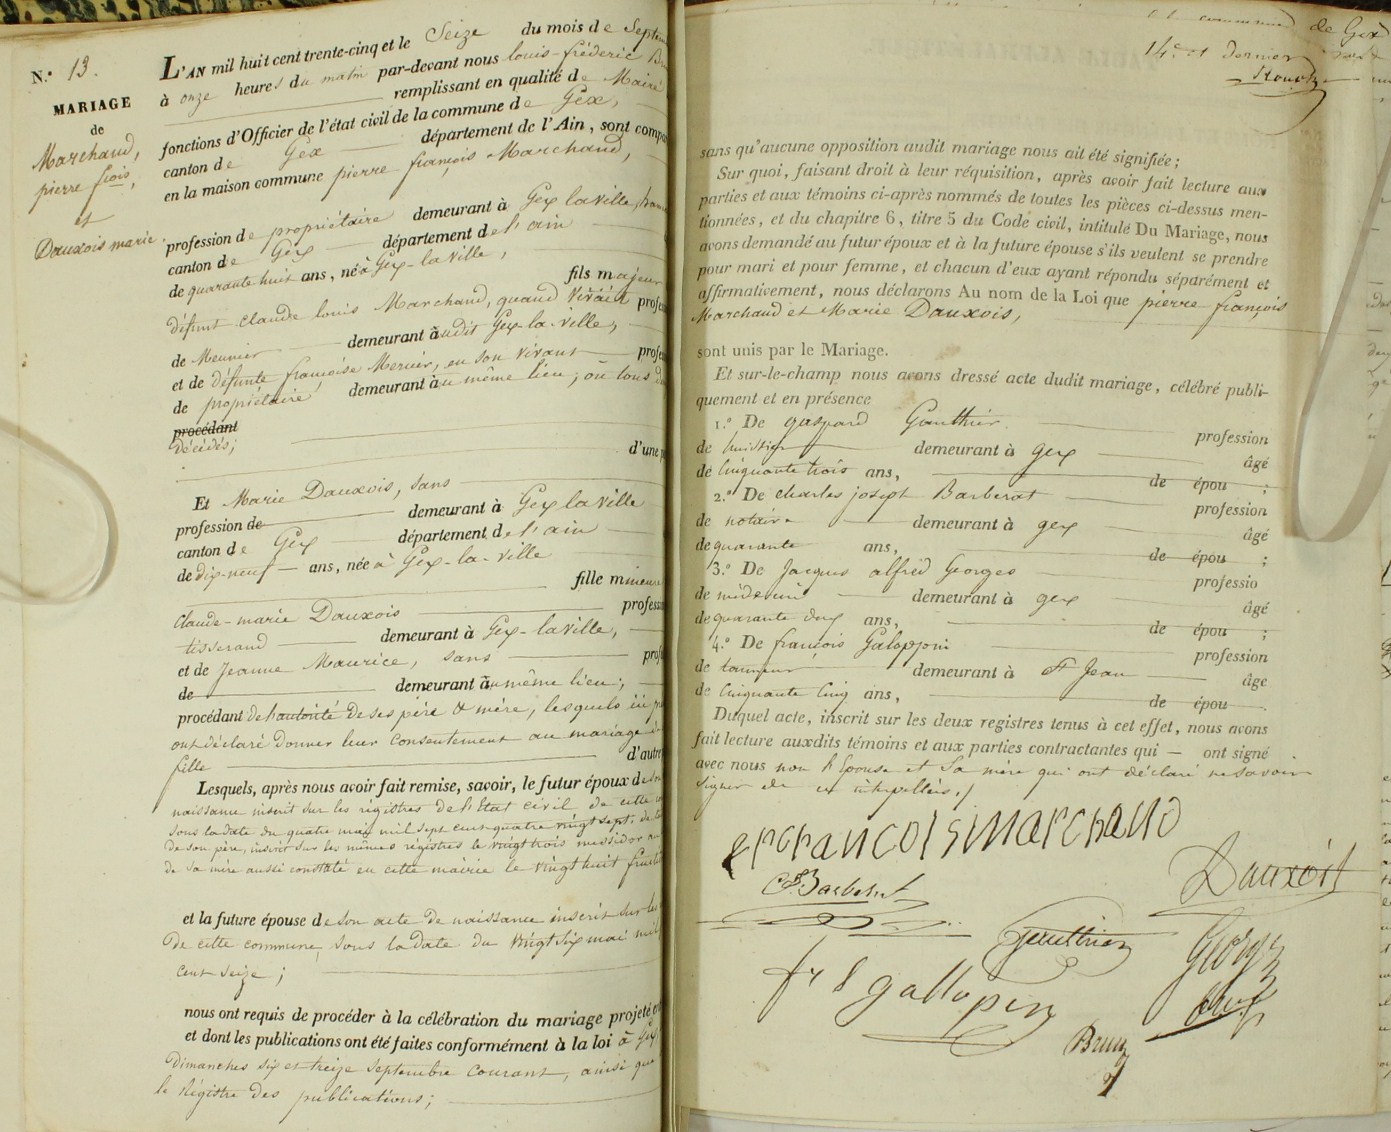 N.º 13.
MARIAGE
de
Marchand,
pierre frois,
et
Dauxois marie.
L'AN mil huit cent trente-cinq et le Seize du mois de Septem
à onze heures du matin par-devant nous louis-frédéric
remplissant en qualité de Maire
fonctions d'Officier de l'état civil de la commune de Gex,
canton de Gex département de l'Ain, sont compa
en la maison commune pierre françois Marchand,
profession de propriétaire demeurant à Gex la ville,
canton de Gex département de l'ain
de quarante huit ans, né à Gex-la ville,
fils majeur
défunt Claude louis Marchand, quand vivait profes
de Meunier demeurant audit Gex-la-ville,
et de défunte françoise Mercier, en son vivant profes
de propriétaire demeurant au même lieu; où tous
procédant
décédés;
d'une p
Et Marie Dauxois, sans
profession de demeurant à Gex la ville
canton de Gex département de l'ain
de dix-neuf ans, née à Gex-la-ville
fille mineure
Claude-marie Dauxois profession
tisserand demeurant à Gex-la ville,
et de Jeanne Maurice, sans prof
de demeurant au même lieu;
procédant de l'autorité de ses père & mère, lesquels ici
ont déclaré donner leur consentement au mariage de
fille d'autre
Lesquels, après nous avoir fait remise, savoir, le futur époux de son
naissance inscrit sur les régistres de l'Etat civil de cette
sous la date du quatre mai mil sept cent quatre vingt sept, de
de son père, inscrit sur les mêmes régistres le vingt trois messidor an
de sa mère aussi constaté en cette mairie le vingt huit fructi
et la future épouse de son acte de naissance inscrit sur les
de cette commune, sous la date du vingt six mai mil
cent seize;
nous ont requis de procéder à la célébration du mariage projeté en
et dont les publications ont été faites conformément à la loi à Gex
dimanches six et treize Septembre courant, ainsi que
le Régistre des publications;
de Gex
14.e et dernier
sans qu'aucune opposition audit mariage nous ait été signifiée;
Sur quoi, faisant droit à leur réquisition, après avoir fait lecture aux
parties et aux témoins ci-après nommés de toutes les pièces ci-dessus men-
tionnées, et du chapitre 6, titre 5 du Code civil, intitulé Du Mariage, nous
avons demandé au futur époux et à la future épouse s'ils veulent se prendre
pour mari et pour femme, et chacun d'eux ayant répondu séparément et
affirmativement, nous déclarons Au nom de la Loi que pierre françois
Marchand et Marie Dauxois,
sont unis par le Mariage.
Et sur-le-champ nous avons dressé acte dudit mariage, célébré publi-
quement et en présence
1.º De gaspard Gauthier profession
de huissier demeurant à gex âgé
de cinquante trois ans, de épou ;
2.º De charles joseph Barberat profession
de notaire demeurant à gex âgé
de quarante ans, de épou ;
3.º De Jacques alfred Georges professio
de médecin demeurant à gex âgé
de quarante deux ans, de épou ;
4.º De françois Galoppin profession
de tanneur demeurant à St Jean âge
de cinquante cinq ans, de épou
Duquel acte, inscrit sur les deux registres tenus à cet effet, nous avons
fait lecture auxdits témoins et aux parties contractantes qui ont signé
avec nous non l'Epouse et Sa mère qui ont déclaré ne savoir
signer de ce interpellés.
francois marchand
Dauxois
Barberat
Gauthier
Georges
fr s gallopin
Brun